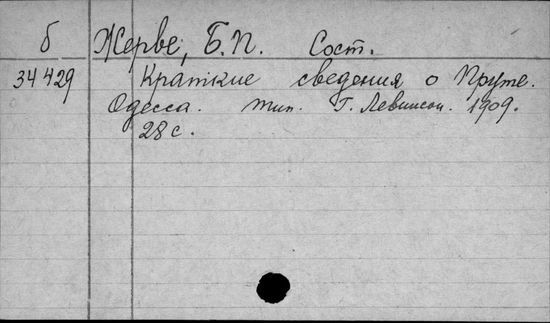 б Жерве, Б.П. Сост.
34429 Краткие сведения о Пруте.
Одесса. тип. Г. Левинсон. 1909.
28 с.